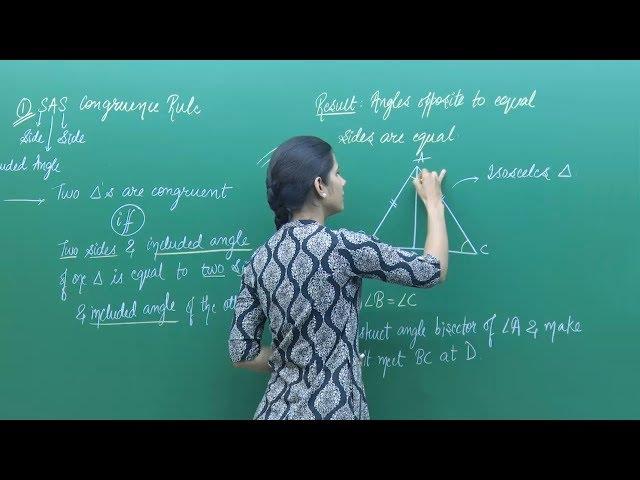 ① SAS Congruence Rule
Side Side
uded Angle
→ Two Δ's are congruent
iff
Two sides & included angle
of one Δ is equal to two
& included angle of the
Result: Angles opposite to equal
sides are equal
A
Isosceles Δ
C
∠B = ∠C
struct angle bisector of ∠A & make
it meet BC at D.